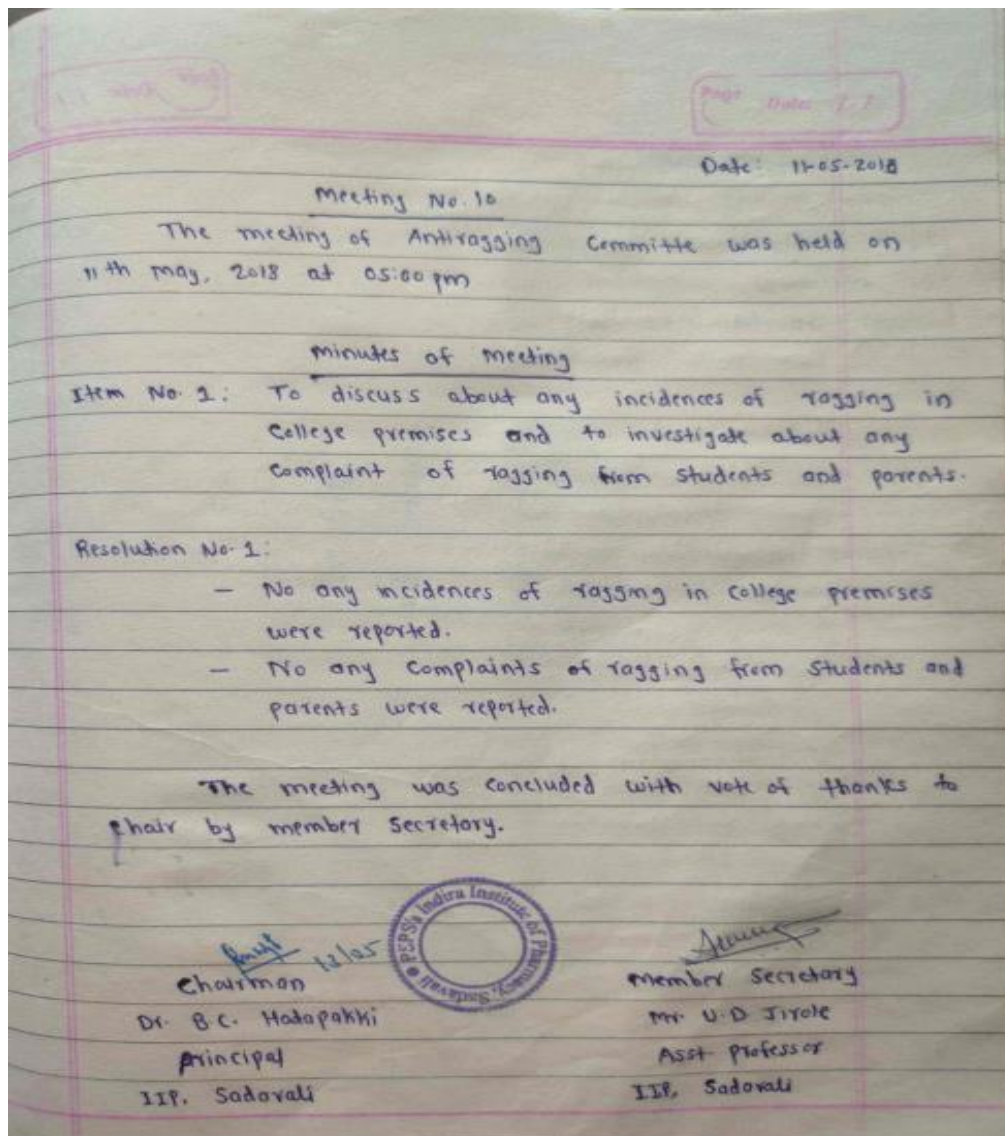 Page Date: / /
Date: 11-05-2018
Meeting No. 10
The meeting of Antiragging Committe was held on
11th may, 2018 at 05:00 pm
minutes of meeting
Item No. 1: To discuss about any incidences of ragging in
College premises and to investigate about any
Complaint of ragging from students and parents.
Resolution No. 1:
— No any incidences of ragging in college premises
were reported.
— No any Complaints of ragging from students and
parents were reported.
The meeting was concluded with vote of thanks to
Chair by member Secretory.
PSPS's Indira Institute of Pharmacy, Sadavali
12/05
Chairman
Member Secretary
Dr. B.C. Hatapakki
Mr. U.D Jirole
Principal
Asst professor
IIP, Sadavali
IIP, Sadavali